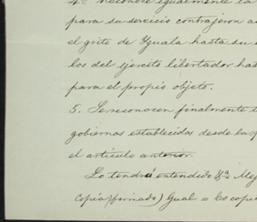 4.ª Reconoce igualmente la
para su servicio contrajeron
el grito de Yguala hasta su
los del ejercito libertador has
para el propio objeto.
5. Se reconocen finalmente
gobiernos establecidos desde la
el articulo anterior.
Lo tendrá entendido
copia (firmado) Ygual = Es copia